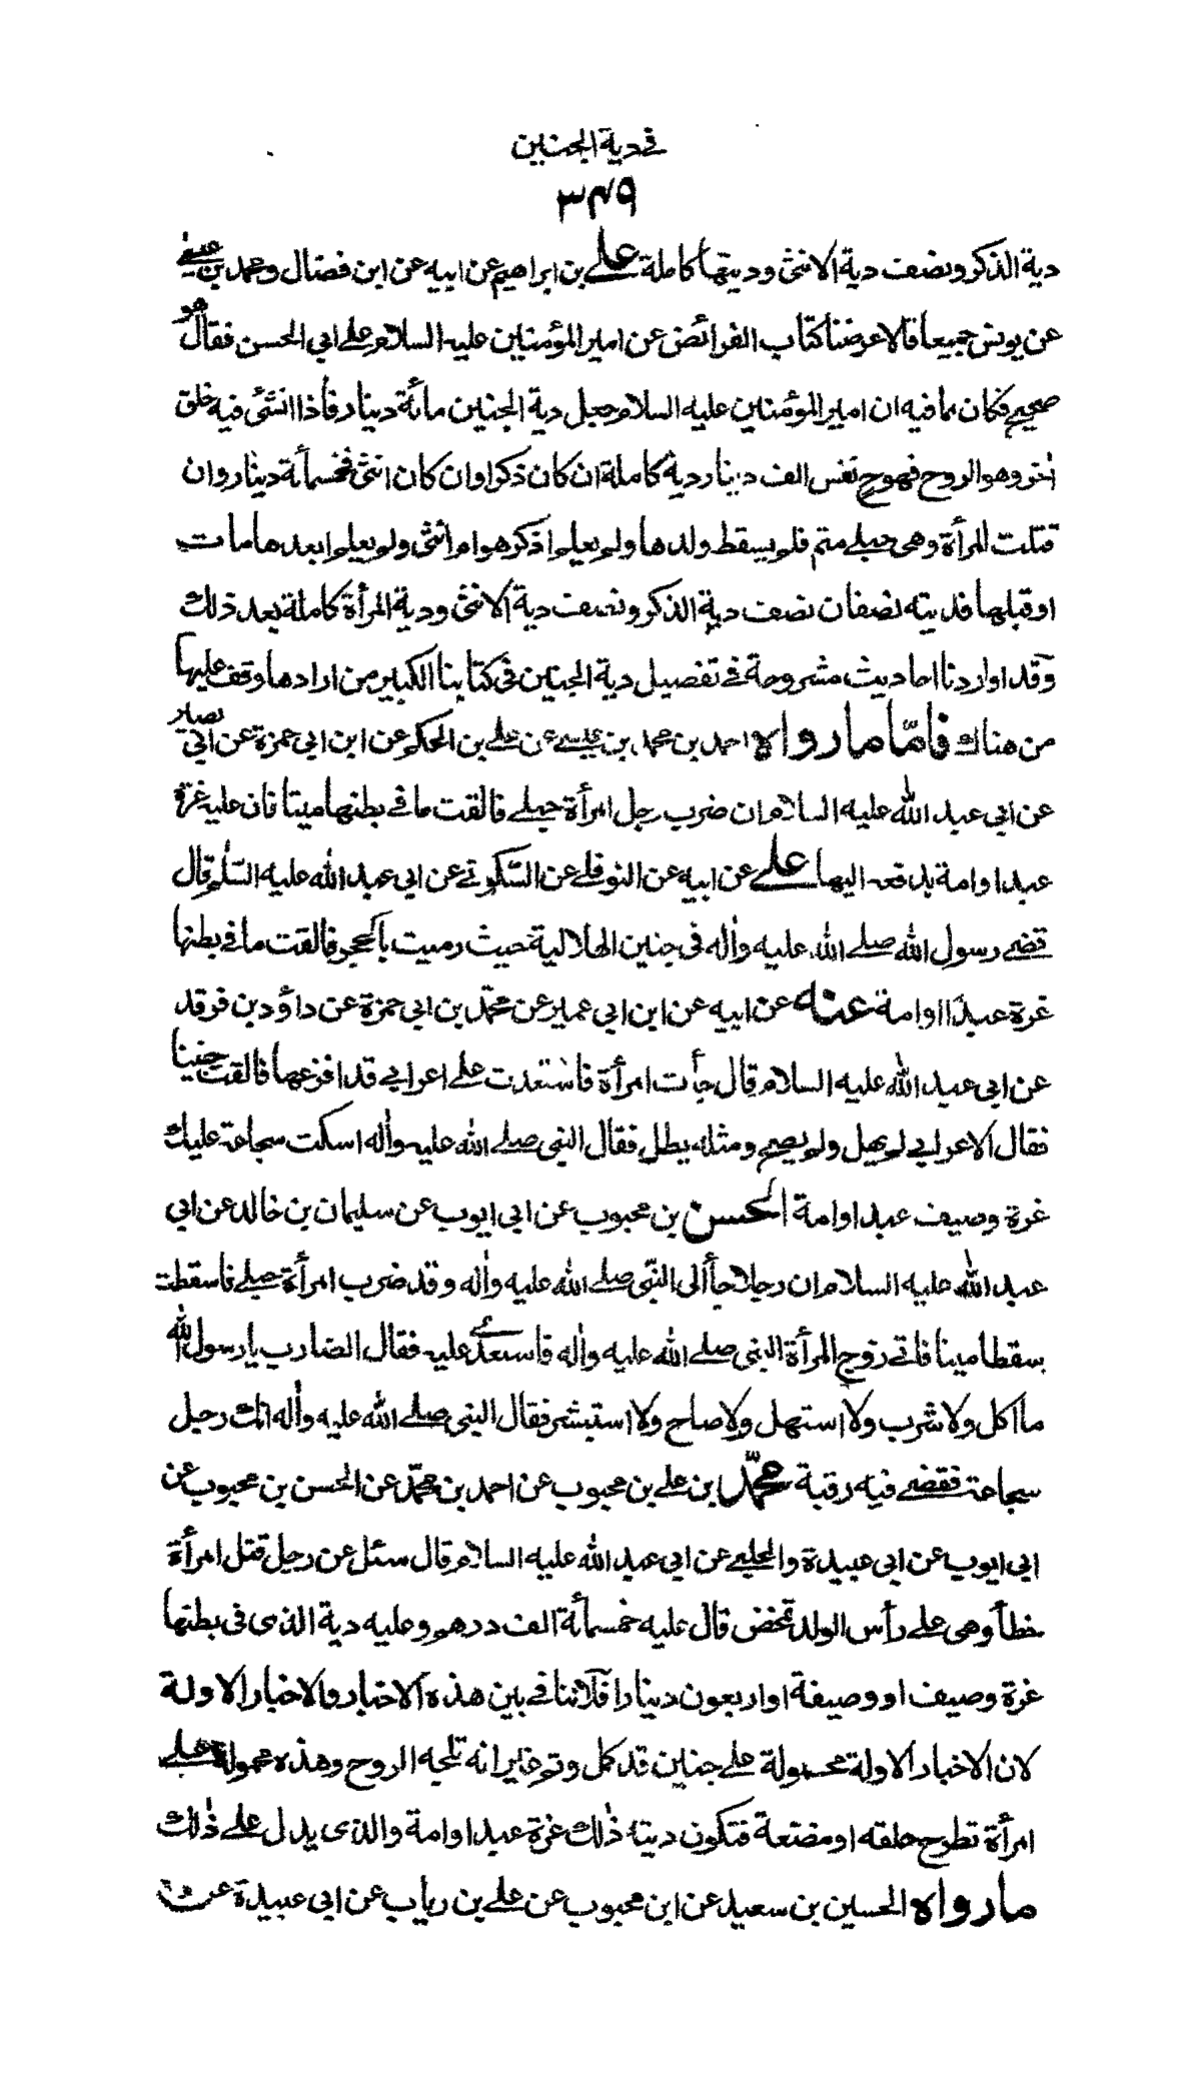 في دية الجنين
٣٤٩
دية الذكر ونصف دية الانثى وديتها كاملة علي بن ابراهيم عن ابيه عن ابن فضال ومحمد بن عيسى
عن يونس جميعا قالا عرضنا كتاب الفرائض عن امير المؤمنين عليه السلام على ابي الحسن فقال هو
صحيح فكان مما فيه ان امير المؤمنين عليه السلام جعل دية الجنين مائة دينار فاذا انشئ فيه خلق
اخر وهو الروح فهو ح نفس الف دينار دية كاملة ان كان ذكرا وان كان انثى فخمسمأة دينار وان
قتلت المرأة وهي حبلى متم فلم يسقط ولدها ولم يعلم اذكر هو ام أنثى ولم يعلم ابعدها مات
او قبلها فديته نصفان نصف دية الذكر ونصف دية الانثى ودية المرأة كاملة بعد ذلك
وقد اوردنا احاديث مشروحة في تفصيل دية الجنين في كتابنا الكبير من ارادها وقف عليها
من هناك فامّا ما رواه احمد بن محمد بن عيسى عن علي بن الحكم عن ابن ابي حمزة عن ابي بصير
عن ابي عبد الله عليه السلام ان ضرب رجل امرأة حبلى فالقت ما في بطنها ميتا فان عليه غرة
عبد او امة يدفعه اليها علي عن ابيه عن النوفلي عن السّكوني عن ابي عبد الله عليه السّلم قال
قضى رسول الله صلى الله عليه واله في جنين الهلالية حيث رميت بالحجر فالقت ما في بطنها
غرة عبدًا او امة عنه عن ابيه عن ابن ابي عمير عن محمّد بن ابي حمزة عن داؤد بن فرقد
عن ابي عبد الله عليه السلام قال جأت امرأة فاستعدت على اعرابي قد افزعها فالقت جنينا
فقال الاعرابي لم يهل ولم يصح ومثله يطل فقال النبي صلى الله عليه واله اسكت سجاعة عليك
غرة وصيف عبد او امة الحسن بن محبوب عن ابي ايوب عن سليمان بن خالد عن ابي
عبد الله عليه السلام ان رجلا جأ الى النبّي صلى الله عليه واله وقد ضرب امرأة حبلى فاسقطت
سقطا ميتا فاتى زوج المرأة النبي صلى الله عليه واله فاستعدى عليه فقال الضارب يا رسول الله
ما اكل ولا شرب ولا استهل ولا صاح ولا استبشر فقال النبي صلى الله عليه واله انك رجل
سجاعة فقضى فيه رقبة محمّد بن علي بن محبوب عن احمد بن محمّد عن الحسن بن محبوب عن
ابي ايوب عن ابي عبيدة والحلبي عن ابي عبد الله عليه السلام قال سئل عن رجل قتل امرأة
خطأ وهي على رأس الولد تمخض قال عليه خمسمأة الف درهم وعليه دية الذي في بطنها
غرة وصيف او وصيفة او اربعون دينارا فلا تنافي بين هذه الاخبار والاخبار الاولة
لان الاخبار الاولة محمولة على جنين قد كمل وتم غير انه تلجه الروح وهذه محمولة على
امرأة تطرح علقه او مضغة فتكون ديته ذلك غرة عبد او امة والذي يدل على ذلك
ما رواه الحسين بن سعيد عن ابن محبوب عن علي بن رياب عن ابي عبيدة عن